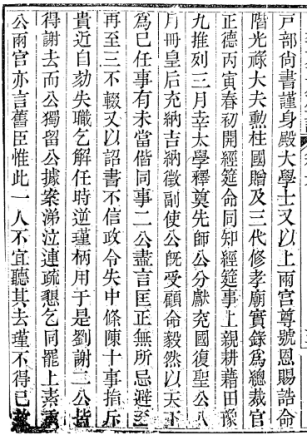 戸部尚書謹身殿大學士又以上兩宮尊號恩賜誥命
階光祿大夫勳柱國贈及三代修孝廟實錄爲總裁官
正德丙寅春初開經筵命同知經筵事上親耕藉田豫
九推列三月幸太學釋奠先師公分獻兖國復聖公八
月冊皇后充納吉納徵副使公旣受顧命毅然以天下
爲己任事有未當偕同事二公盡言匡正無所忌避至
再至三不輟又以詔書不信政令失中條陳十事指斥
貴近自劾失職乞解任時逆瑾柄用于是劉謝二公皆
得謝去而公獨留公據案涕泣連疏懇乞同罷上素重
公兩宮亦言舊臣惟此一人不宜聽其去瑾不得已敘